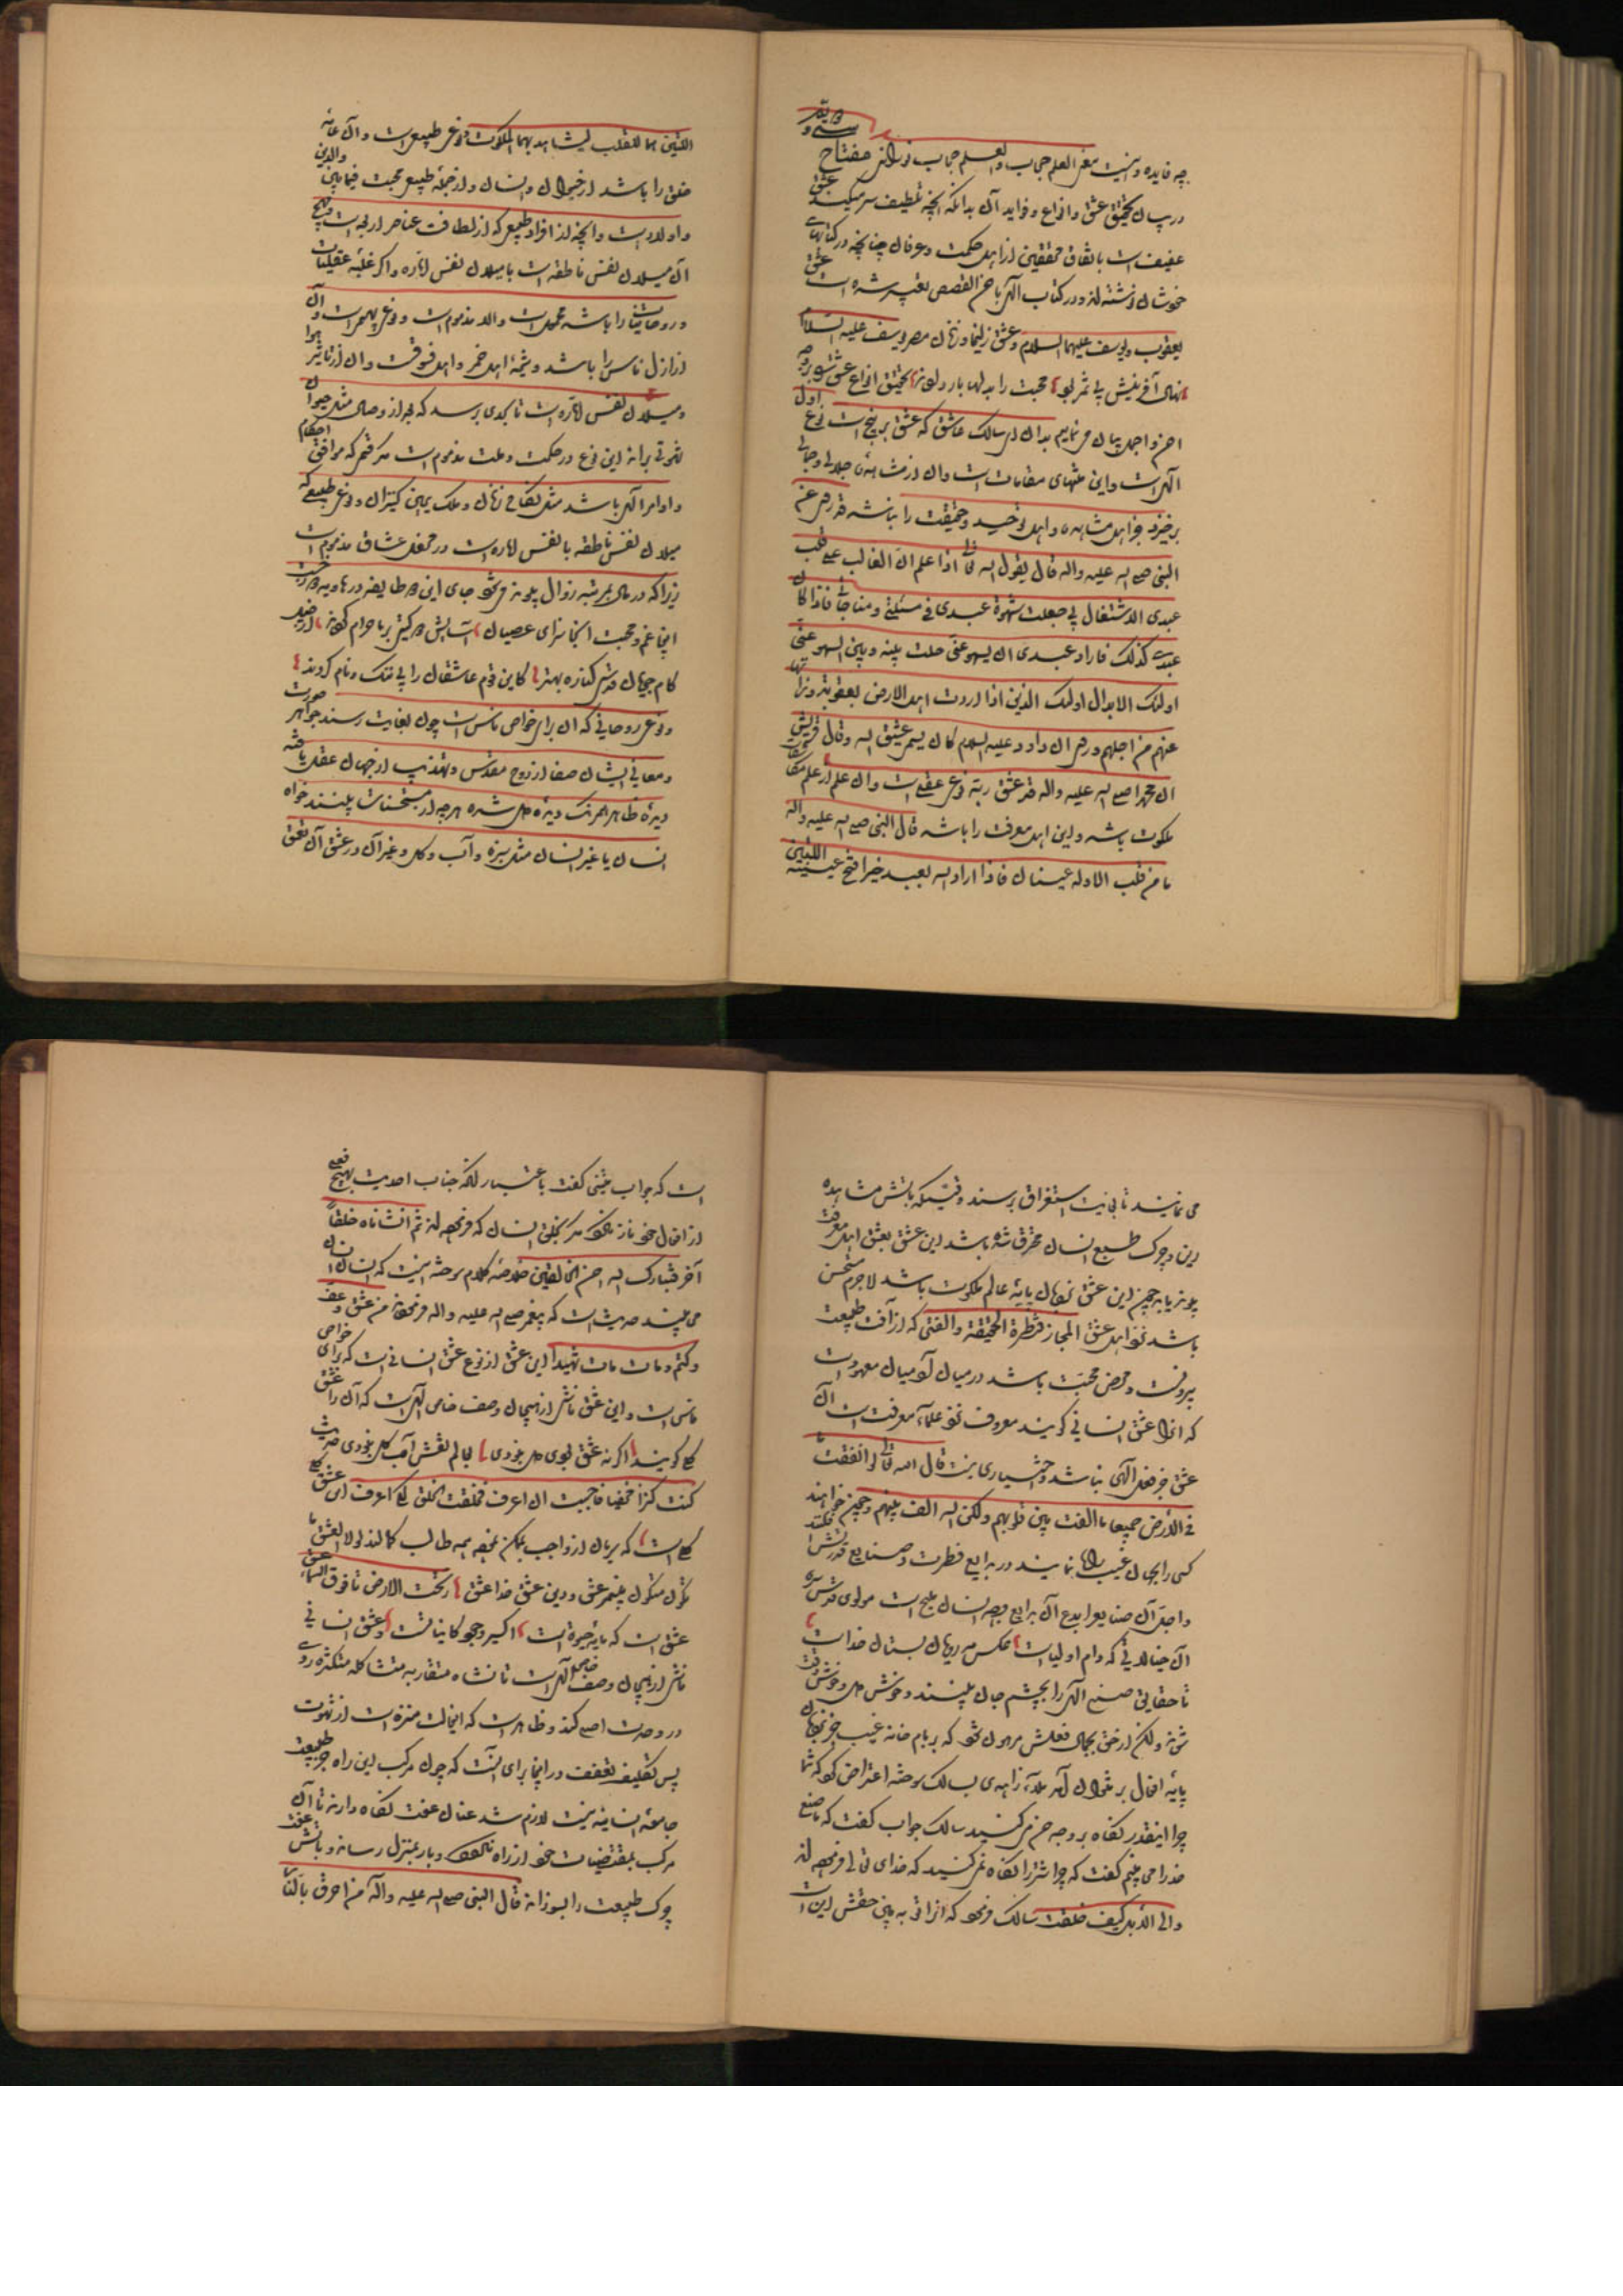 چه فایده و نیست مغر العلم حجاب والعلم حجاب نورانی مفتاح
در بیان تحقیق عشق و انواع و فواید آن بدانکه آنچه تلطیف سر میکند عشق
عفیف است باتفاق محققین از اهل حکمت و عرفان چنانچه در کتابهای
خودشان نوشته‌اند و در کتاب الهی باحسن القصص تعبیر شده است عشق
یعقوب و یوسف علیهما السلام و عشق زلیخا و زنان مصر بیوسف علیه السلام
نهال آفرینش بی ثمر بود محبت را بدلها بار دادند تحقیق انواع عشق بر وجه
احسن و اجمل بیان می نمایم بدان ای سالک عاشق که عشق بر پنج است نوع اول
الهی است و این منتهای مقامات است و آن از مشاهده جلالی و جمالی
برخیزد جز اهل مشاهده و اهل توحید و حقیقت را نباشد قد روی عن
النبی صلی الله علیه واله قال یقول الله تعالی اذا علم ان الغالب علی قلب
عبدی الاشتغال بی جعلت شهوة عبدی فی مسئلتی و مناجاتی فاذا کان
عبدی کذلک فاراد عبدی ان یسهو عنی حلت بینه و بین السهو عنی
اولئک الابدال اولئک الذین اذا اردت اهل الارض بعقوبة زویتها
عنهم من اجلهم و روی ان داود علیه السلام کان یسمی عشیق الله و قال قریش
ان محمدا صلی الله علیه واله قد عشق ربه نوع عقلی است و آن علم از علم مکاشفات
ملکوت باشد و این اهل معرفت را باشد قال النبی صلی الله علیه واله
ما من قلب الا وله عینان فاذا اراد الله بعبد خیرا فتح عینیه اللتین
اللتین هما للقلب لیشاهد بهما الملکوت و نوع طبیعی است و آن عامه
خلق را باشد از حیوان و انسان و از جمله طبیعی محبت فیما بین والدین
و اولاد است و آنچه از افراد طبیعی که از لطافت عناصر اربعه است قبیح
آن میلان نفس ناطقه است با میلان نفس اماره و اگر غلبه عقلیات
و روحانیات را باشد محمود است والا مذموم است و نوع بهیمی است و آن
اراذل ناس را باشد و شیمهٔ اهل خمر و اهل فسوقست و آن از تاثیر هوا
و میلان نفس اماره است تا بحدی برسد که بعد از وصال مثل حیوان
شهوتی براند این نوع در حکمت و ملت مذموم است مگر قسمی که موافق احکام
و اوامر الهی باشد مثل نکاح زنان و ملک یمین کنیزان و نوع طبیعی که
میلان نفس ناطقه با نفس اماره است در محفل عشاق مذموم است
زیرا که در مآل بمرتبه زوال پیوند می‌شود جای این دو طایفه در هاویه
اینجا غم و محبت آنجا سزای عصیان آسایش دو گیتی بر ما حرام کردند
کام جهان کناره بهتر کاین قوم عاشقان را بی ننگ و نام کردند
و نوع روحانی که آن برای خواص ناس است چون بغایت رسند جواهر صورت
و معانی ایشان صفا از روح مقدس و تهذیب از جهان عقل یافته
دیدهٔ ظاهر همرنگ دیده دل شده هر چه از مستحسنات بینند خواه
انسان یا غیر انسان مثل سبزه و آب و گل و غیر آن در عشق آن تعمق
می نمایند تا بنهایت استغراق برسند وقتیکه بآتش مشاهده
این وجوه طبع انسان محترق شده باشد این عشق بعشق اهل معرفت
پیوند یابد چون این عشق نردبان پایهٔ عالم ملکوت باشد لاجرم مستحسن
باشد نزد اهل عشق المجاز قنطرة الحقیقة والفتی که از آفت طبیعت
بیرونست و محض محبت باشد در میان آدمیان معهود است
که آنرا عشق انسانی گویند معروف نزد علماء معرفت است آن
عشق جز فعل الهی نباشد و اختیاری نیست قال الله تعالی لو انفقت ما
فی الارض جمیعا ما الفت بین قلوبهم ولکن الله الف بینهم و چون خواهند
کسی را بجمال غیب راه نمایند در بدایع فطرت و صنایع قدرتش افکنند
و اجل آن صنایع و ابدع آن بدایع وجه انسان ملیح است مولوی قدس سره
آن خیالاتی که دام اولیاست عکس مه رویان بستان خداست
تا حقایق صنع الهی را بچشم جان بینند و خوش دل و خوش وقت
شوند ولیکن از حق بجمال فعلش مرهون شود که بر بام خانه غیب جز نردبان
پایه افعال بر نتوان آمد ملا زاهدی بسالک سوخته اعتراض کرد که شما
چرا اینقدر نگاه بر وجه حسن می کنید سالک جواب گفت که ما صنع
خدا را می بینیم گفت که چرا شتر را نگاه نمی کنید که خدای تعالی فرموده‌اند
والی الابل کیف خلقت سالک فرمود که آنرا تو به بین حقش این است
است که جواب چنین گفت باعتبار آنکه جناب احدیت بهیچ فعلی
از افعال خود نازد مگر بخلق انسان که فرموده‌اند ثم انشأناه خلقا
آخر فتبارک الله احسن الخالقین خلاصه کلام سوخته اینست که انسان انسان
می بیند حدیث است که پیغمبر صلی الله علیه واله فرموده من عشق و عف
و کتم و مات مات شهیدا این عشق از نوع عشق انسانی است که برای خواص
ناس است و این عشق ناشی از هیجان وصف خاص الهی است که آن را عشق
کلی گویند اگر نه عشق بودی دل نبودی بعالم نقش آب و گل نبودی حدیث
کنت کنزا مخفیا فاحببت ان اعرف فخلقت الخلق لکی اعرف این عشق
کلی است که بریان از واجب بممکن نموده همه طالب کمالند لولا العشق ما
نکون متکون پیغمبر عشق و دین عشق خدا عشق از تحت الارض تا فوق السماء عشق
عشق است که مایه حیوة است اکسیر وجود کایناتست و عشق انسانی
ناشی از هیجان وصف خاص الهی است تا نشاه متقاربه متشاکله متکثره رو
در وحدت اصلی کند و ظاهر است که این حالت منزه است از شهوت
پس تکلیف تعفف در اینجا برای آنست که چون مرکب این راه جز طبیعت
جامعه انسانیه نیست لازم شد عنان عفت نگاه دارند تا آن
مرکب بمقتضیات خود از راه نرود و بار بمنزل رساند و بآتش عفت
چرک طبیعت را بسوزاند قال النبی صلی الله علیه واله من احرق بالنار